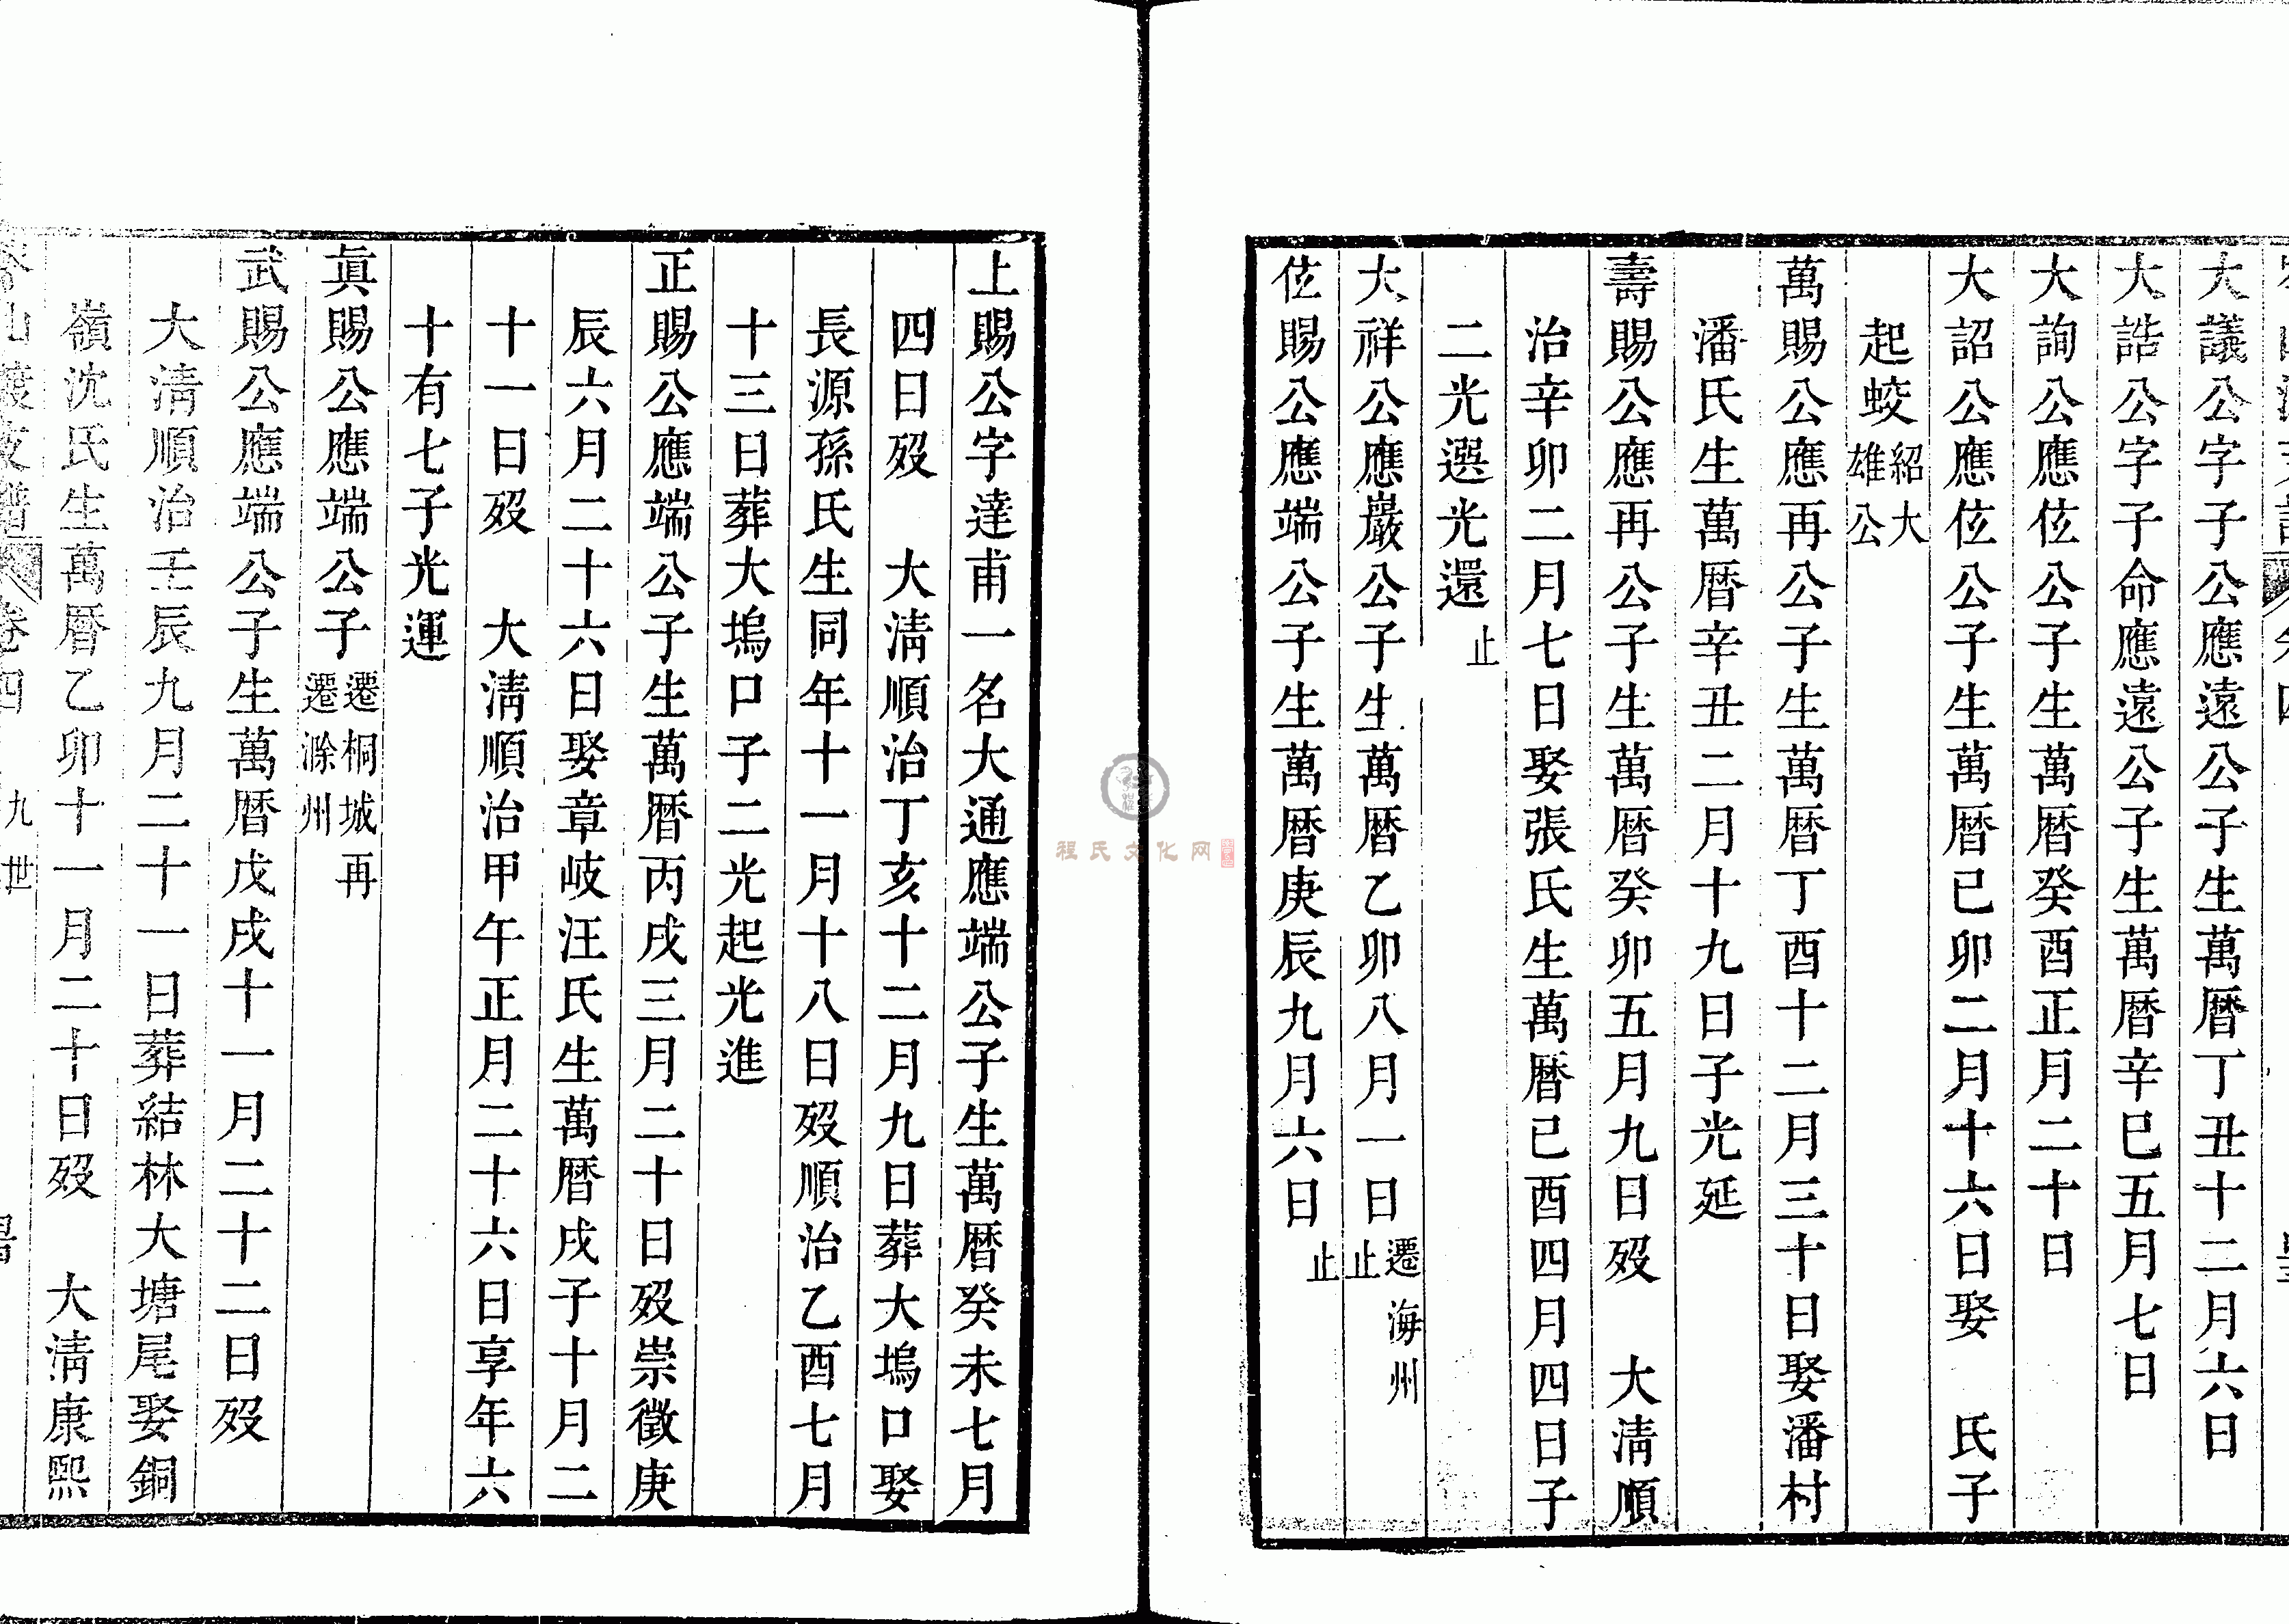 大議公字子公應遠公子生萬曆丁丑十二月六日
大誥公字子命應遠公子生萬曆辛巳五月七日
大詢公應伭公子生萬曆癸酉正月二十日
大詔公應伭公子生萬曆己卯二月十六日娶　氏子
起蛟紹大雄公
萬賜公應再公子生萬曆丁酉十二月三十日娶潘村
潘氏生萬曆辛丑二月十九日子光延
壽賜公應再公子生萬曆癸卯五月九日歿　大清順
治辛卯二月七日娶張氏生萬曆己酉四月四日子
二光選光還止
大祥公應巖公子生萬曆乙卯八月一日遷海州止
伭賜公應端公子生萬曆庚辰九月六日止
上賜公字達甫一名大通應端公子生萬曆癸未七月
四日歿　大清順治丁亥十二月九日葬大塢口娶
長源孫氏生同年十一月十八日歿順治乙酉七月
十三日葬大塢口子二光起光進
正賜公應端公子生萬曆丙戌三月二十日歿崇徵庚
辰六月二十六日娶章岐汪氏生萬曆戌子十月二
十一日歿　大清順治甲午正月二十六日享年六
十有七子光運
眞賜公應端公子遷桐城再遷滁州
武賜公應端公子生萬曆戊戌十一月二十二日歿
大清順治壬辰九月二十一日葬結林大塘尾娶銅
嶺沈氏生萬曆乙卯十一月二十日歿　大清康熙
卷四　九世
程氏文化网